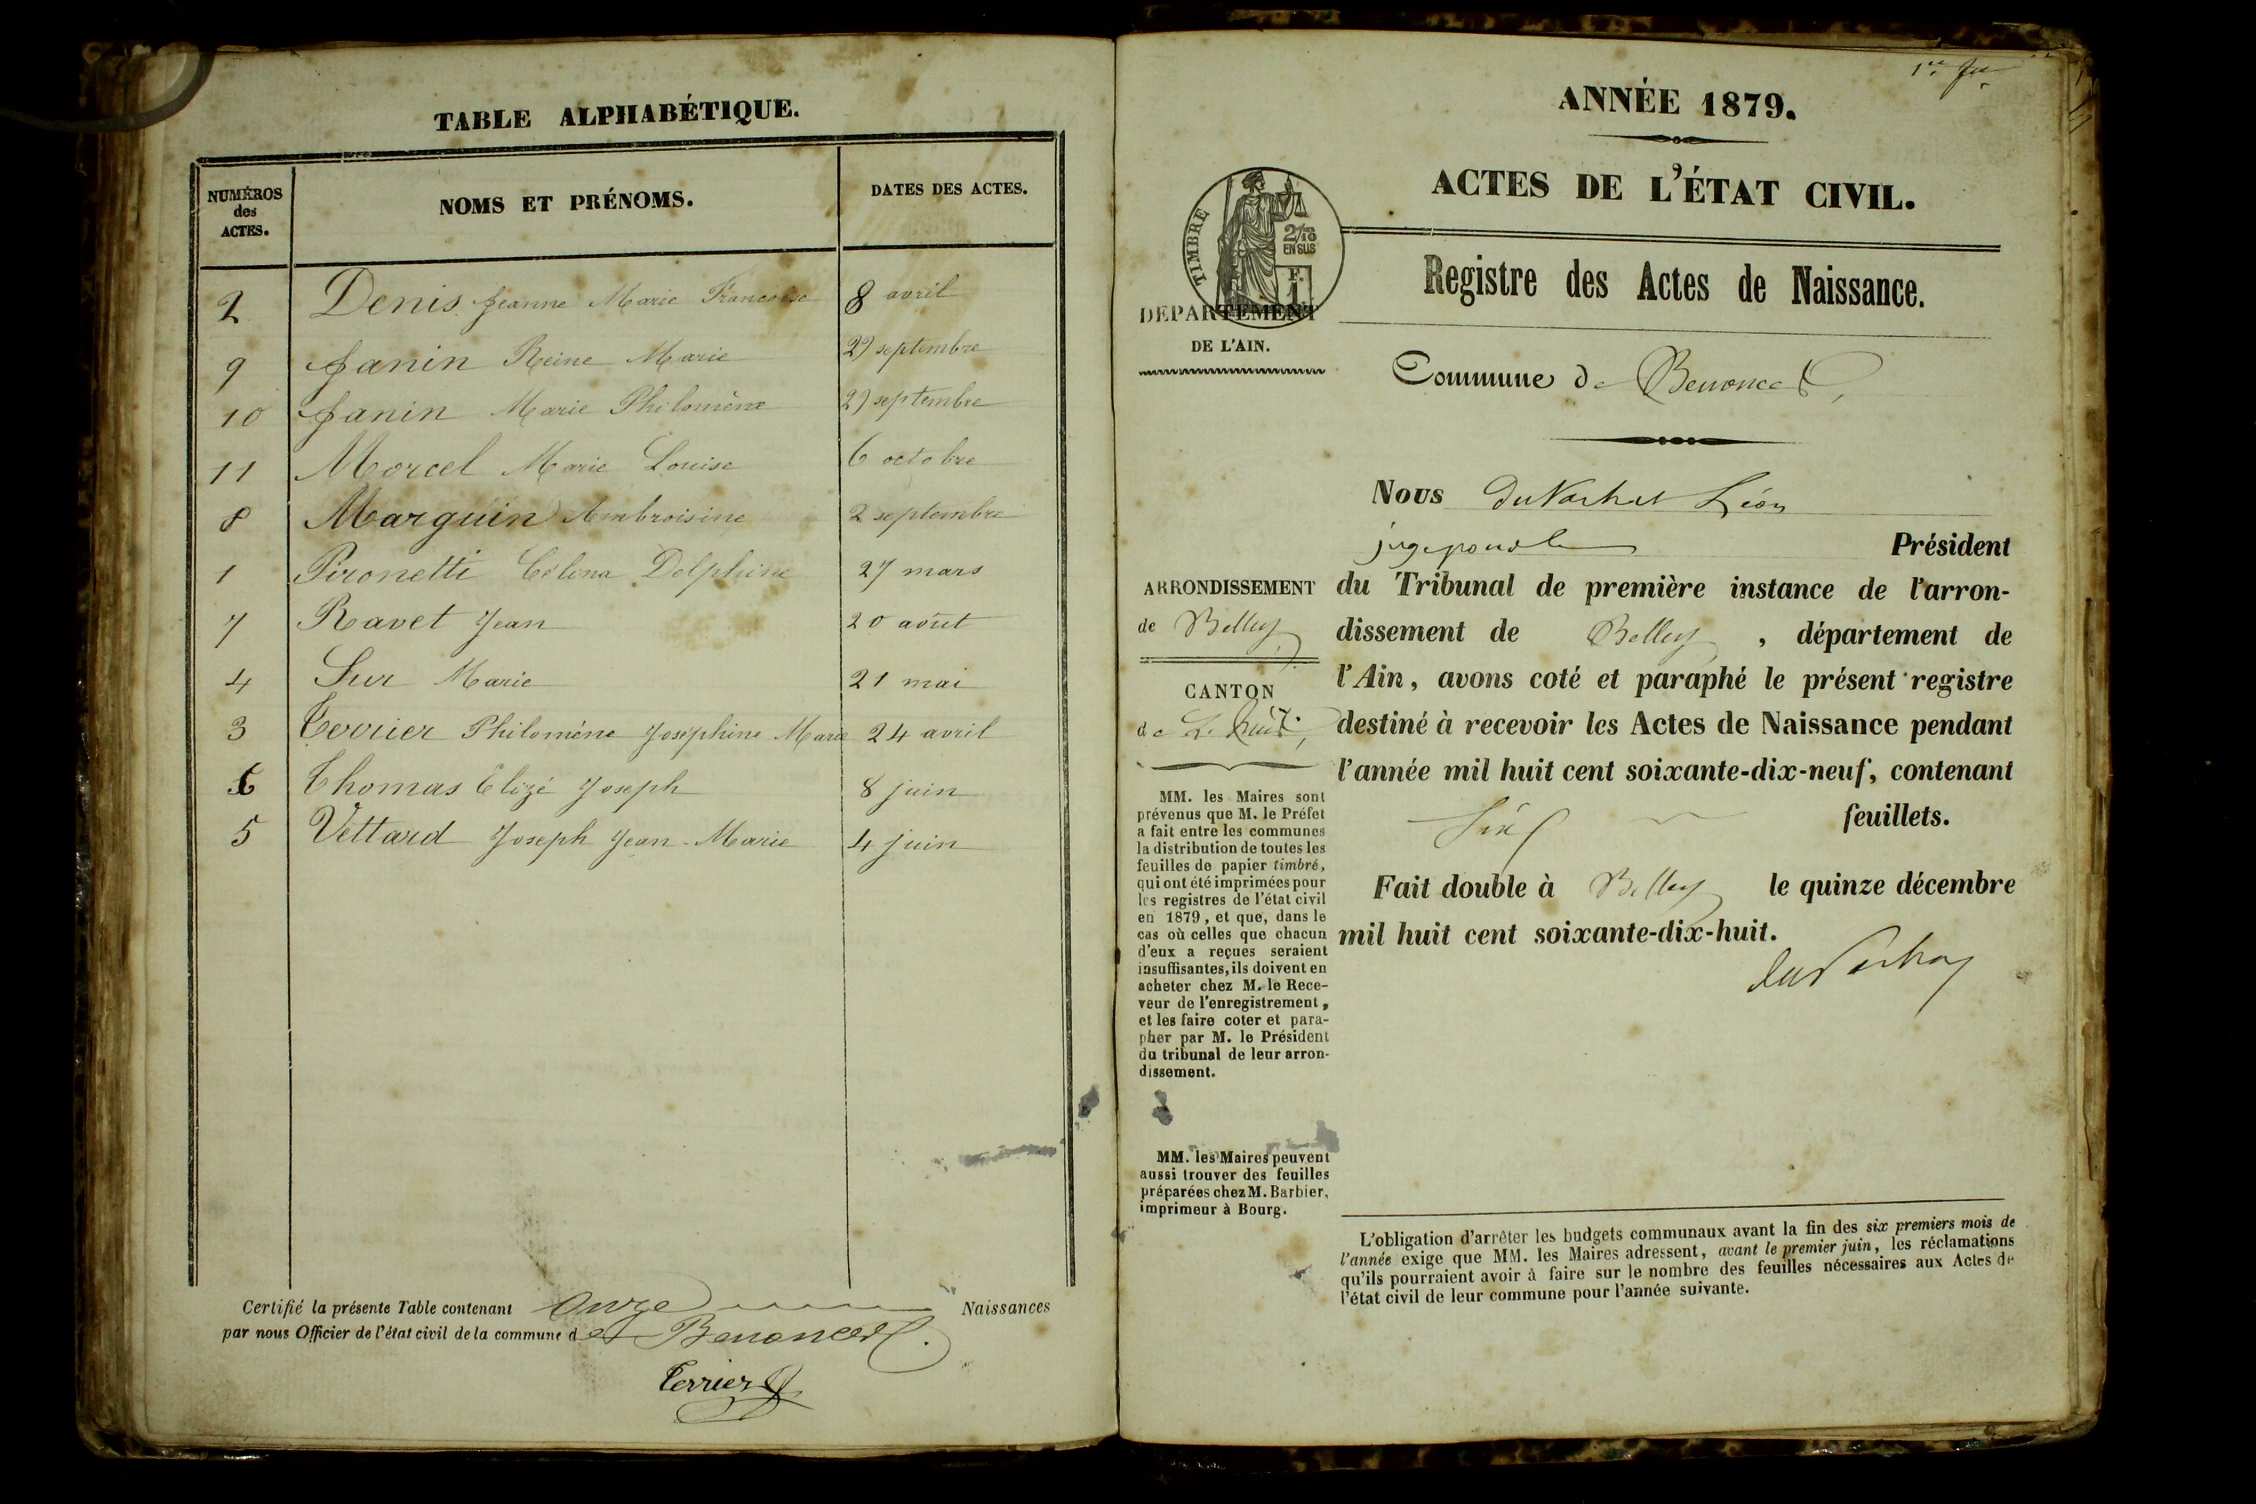 TABLE ALPHABÉTIQUE.
NUMÉROS des ACTES. NOMS ET PRÉNOMS. DATES DES ACTES.
2 Denis Jeanne Marie Francoise 8 avril
9 Janin Reine Marie 29 septembre
10 Janin Marie Philomène 29 septembre
11 Morcel Marie Louise 6 octobre
8 Marguin Ambroisine 2 septembre
1 Pironetti Célina Delphine 27 mars
7 Ravet Jean 20 août
4 Sur Marie 21 mai
3 Terrier Philomène Joséphine Marie 24 avril
6 Thomas Elizé Joseph 8 juin
5 Vettard Joseph Jean-Marie 4 juin
Certifié la présente Table contenant onze Naissances
par nous Officier de l'état civil de la commune de Benonces.
Terrier
1er
ANNÉE 1879.
ACTES DE L'ÉTAT CIVIL.
TIMBRE
2/10
EN SUS
F.
1
DÉPARTEMENT
DE L'AIN.
Registre des Actes de Naissance.
Commune de Benonces
Nous Léon
Président
du Tribunal de première instance de l'arron-
dissement de Belley, département de
l'Ain, avons coté et paraphé le présent registre
destiné à recevoir les Actes de Naissance pendant
l'année mil huit cent soixante-dix-neuf, contenant
Six feuillets.
Fait double à Belley le quinze décembre
mil huit cent soixante-dix-huit.
ARRONDISSEMENT
de Belley
CANTON
de L'huis
MM. les Maires sont
prévenus que M. le Préfet
a fait entre les communes
la distribution de toutes les
feuilles de papier timbré,
qui ont été imprimées pour
les registres de l'état civil
en 1879, et que, dans le
cas où celles que chacun
d'eux a reçues seraient
insuffisantes, ils doivent en
acheter chez M. le Rece-
veur de l'enregistrement,
et les faire coter et para-
pher par M. le Président
du tribunal de leur arron-
dissement.
MM. les Maires peuvent
aussi trouver des feuilles
préparées chez M. Barbier,
imprimeur à Bourg.
L'obligation d'arrêter les budgets communaux avant la fin des six premiers mois de
l'année exige que MM. les Maires adressent, avant le premier juin, les réclamations
qu'ils pourraient avoir à faire sur le nombre des feuilles nécessaires aux Actes de
l'état civil de leur commune pour l'année suivante.